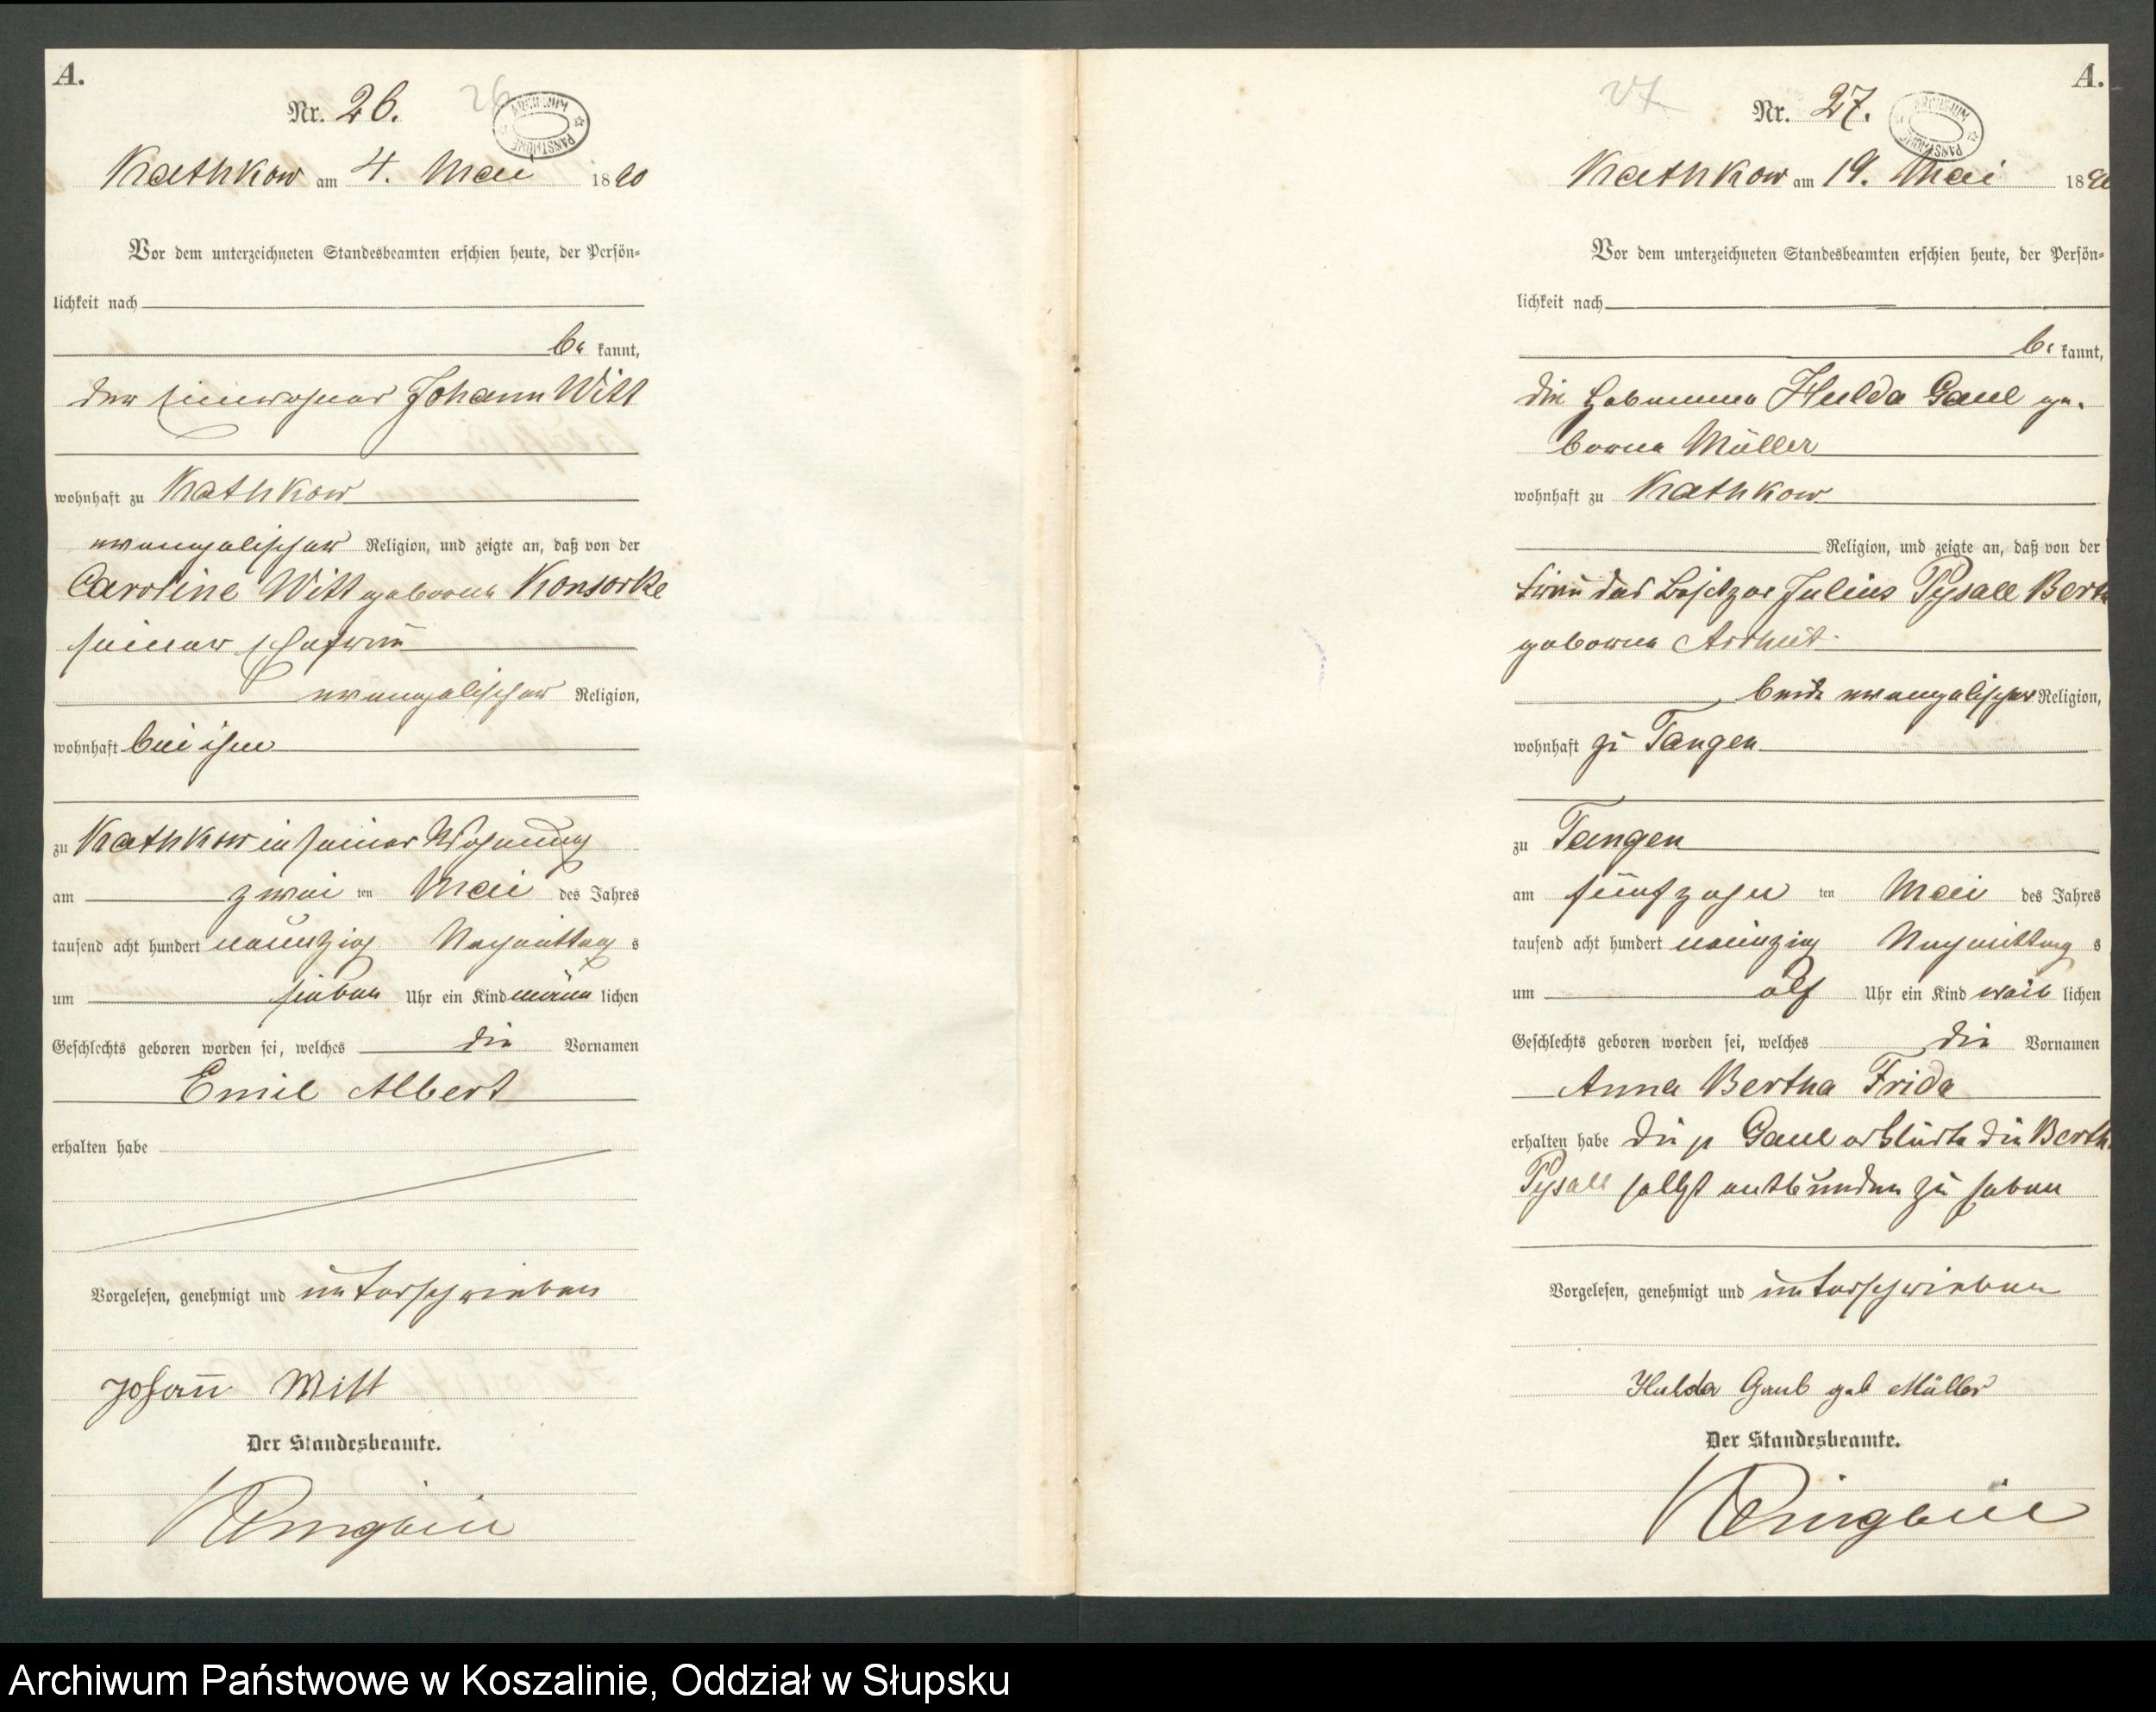 A.
Nr. 26.
26
ARCHIWUM PAŃSTWOWE
Kathkow am 4. Mai 1890
Vor dem unterzeichneten Standesbeamten erschien heute, der Persön-
lichkeit nach
be kannt,
der Einwohner Johann Witt
wohnhaft zu Kathkow
evangelischer Religion, und zeigte an, daß von der
Caroline Witt geborene Konsorke
seiner Ehefrau
evangelischer Religion,
wohnhaft bei ihm
zu Kathkow in seiner Wohnung
am zwei ten Mai des Jahres
tausend acht hundert neunzig Nachmittag s
um sieben Uhr ein Kind männ lichen
Geschlechts geboren worden sei, welches die Vornamen
Emil Albert
erhalten habe
Vorgelesen, genehmigt und unterschrieben
Johann Witt
Der Standesbeamte.
A.
27
Nr. 27.
ARCHIWUM PAŃSTWOWE
Kathkow am 19. Mai 1890
Vor dem unterzeichneten Standesbeamten erschien heute, der Persön-
lichkeit nach
be kannt,
die Hebamme Hulda Gaul ge-
borene Müller
wohnhaft zu Kathkow
Religion, und zeigte an, daß von der
Frau des Besitzer Julius Pysall Bertha
geborene
beide evangelischer Religion,
wohnhaft zu Tangen
zu Tangen
am fünfzehn ten Mai des Jahres
tausend acht hundert neunzig Nachmittag s
um elf Uhr ein Kind weib lichen
Geschlechts geboren worden sei, welches die Vornamen
Anna Bertha Frida
erhalten habe die p Gaul erklärte die Bertha
Pysall selbst entbunden zu haben
Vorgelesen, genehmigt und unterschrieben
Hulda Gaul geb Müller
Der Standesbeamte.
Archiwum Państwowe w Koszalinie, Oddział w Słupsku